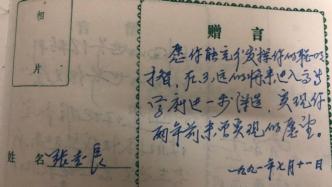 相
片
赠 言
愿你能充分发挥你的聪明
才智，在不远的将来进入高等
学府进一步深造，实现你
两年前未曾实现的愿望。
姓 名 张
一九九一年七月十一日